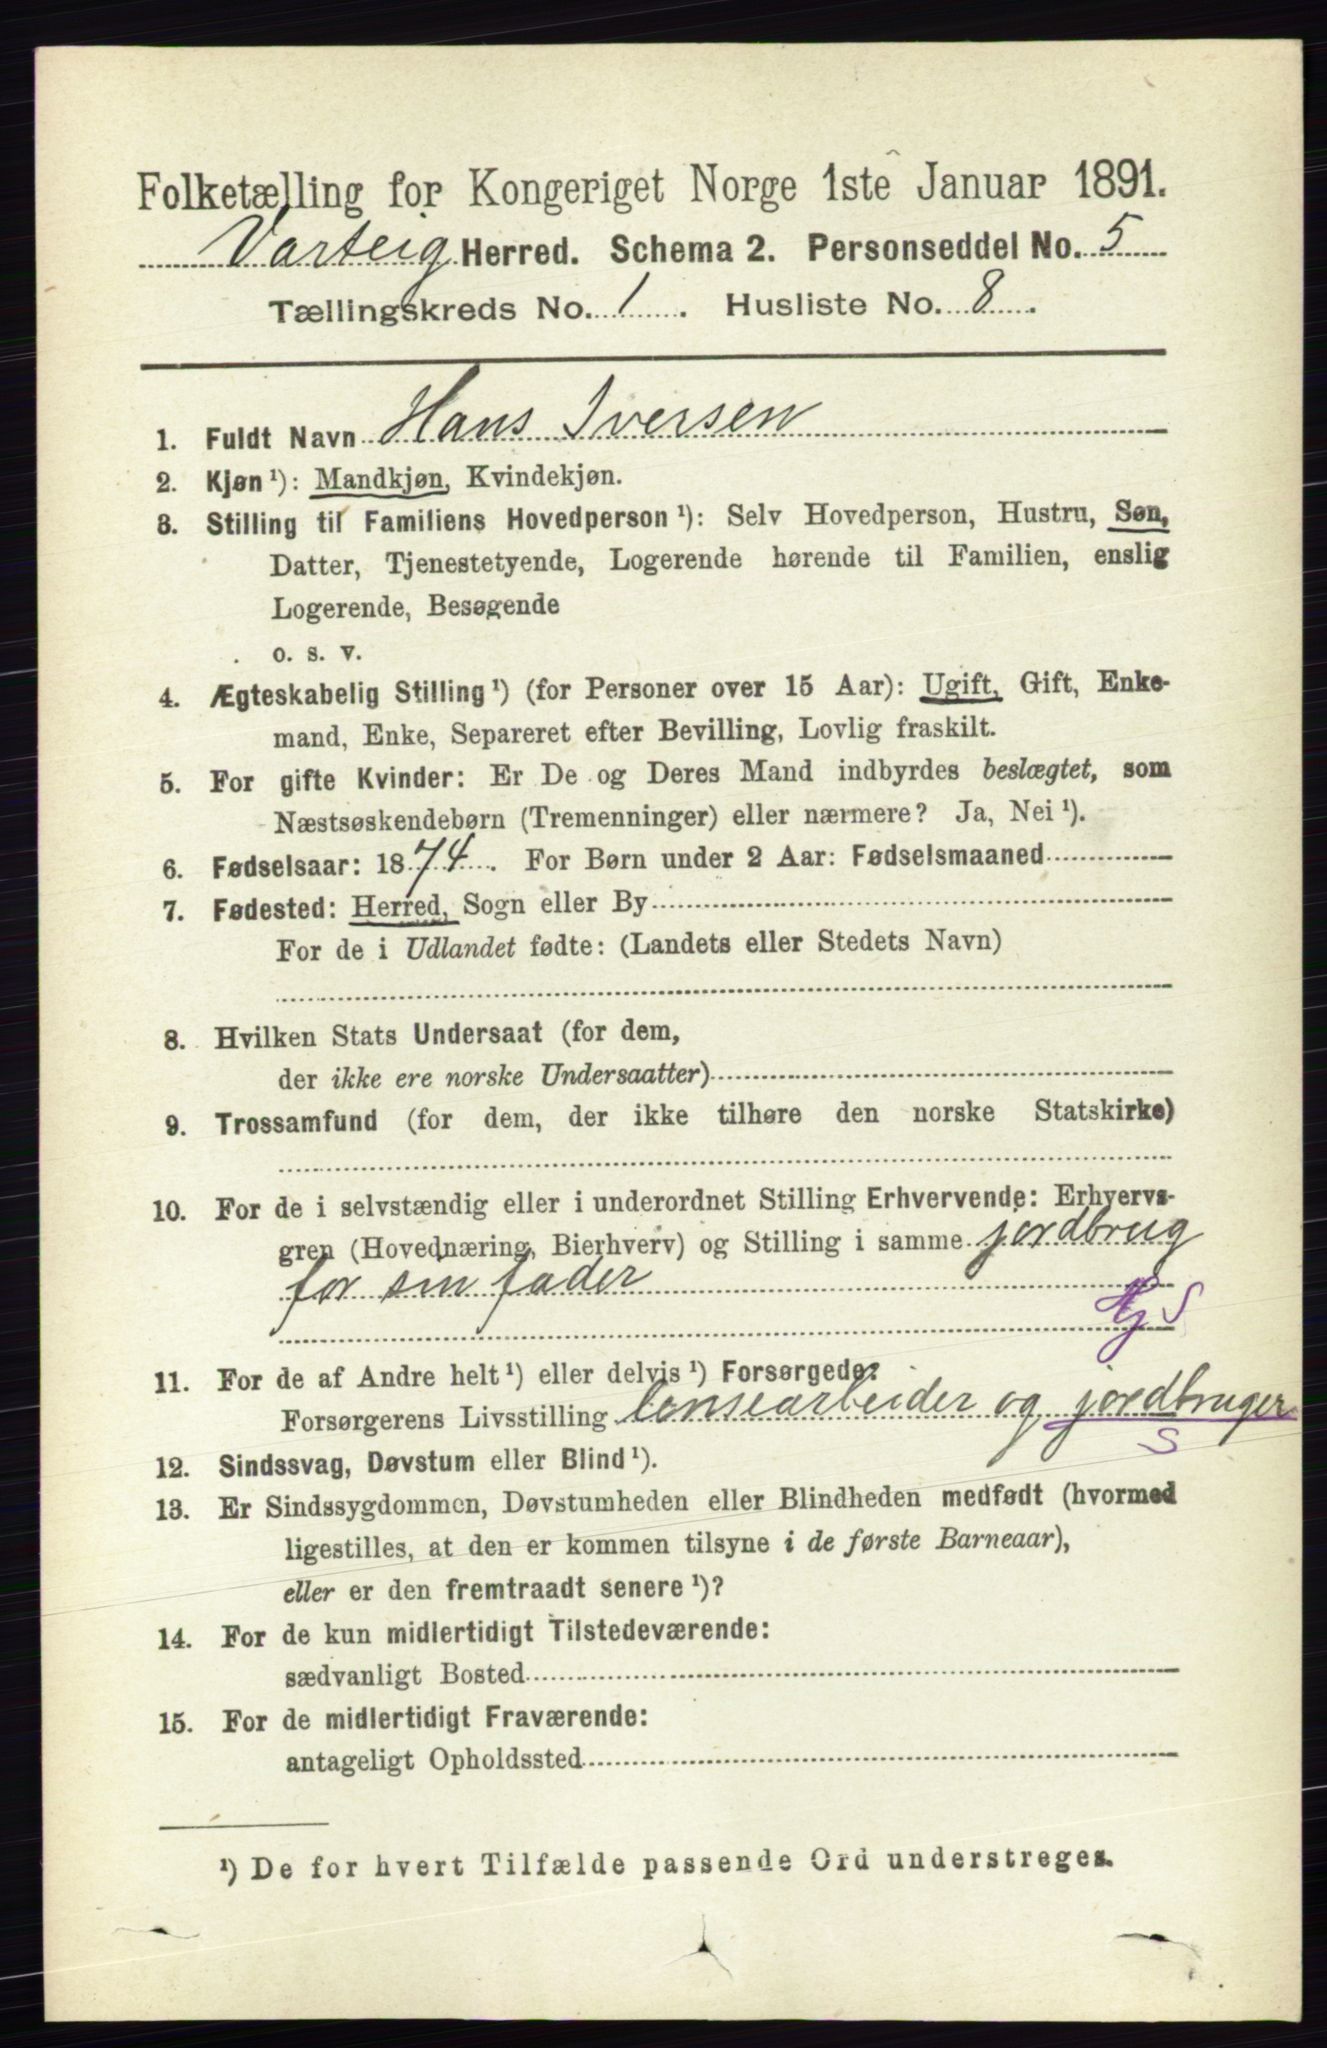 Folketælling for Kongeriget Norge 1ste Januar 1891.
Varteig Herred. Schema 2. Personseddel No. 5
Tællingskreds No. 1. Husliste No. 8.
1. Fuldt Navn Hans Iversen
2. Kjøn ¹): Mandkjøn, Kvindekjøn.
3. Stilling til Familiens Hovedperson ¹): Selv Hovedperson, Hustru, Søn,
Datter, Tjenestetyende, Logerende hørende til Familien, enslig
Logerende, Besøgende
o. s. v.
4. Ægteskabelig Stilling ¹) (for Personer over 15 Aar): Ugift, Gift, Enke-
mand, Enke, Separeret efter Bevilling, Lovlig fraskilt.
5. For gifte Kvinder: Er De og Deres Mand indbyrdes beslægtet, som
Næstsøskendebørn (Tremenninger) eller nærmere? Ja, Nei ¹).
6. Fødselsaar: 1874. For Børn under 2 Aar: Fødselsmaaned
7. Fødested: Herred, Sogn eller By
For de i Udlandet fødte: (Landets eller Stedets Navn)
8. Hvilken Stats Undersaat (for dem,
der ikke ere norske Undersaatter)
9. Trossamfund (for dem, der ikke tilhøre den norske Statskirke)
10. For de i selvstændig eller i underordnet Stilling Erhvervende: Erhvervs-
gren (Hovednæring, Bierhverv) og Stilling i samme jordbrug
for sin fader
Hj S
11. For de af Andre helt ¹) eller delvis ¹) Forsørgede:
Forsørgerens Livsstilling lensearbeider og jordbruger
S
12. Sindssvag, Døvstum eller Blind ¹).
13. Er Sindssygdommen, Døvstumheden eller Blindheden medfødt (hvormed
ligestilles, at den er kommen tilsyne i de første Barneaar),
eller er den fremtraadt senere ¹)?
14. For de kun midlertidigt Tilstedeværende:
sædvanligt Bosted
15. For de midlertidigt Fraværende:
antageligt Opholdssted
¹) De for hvert Tilfælde passende Ord understreges.